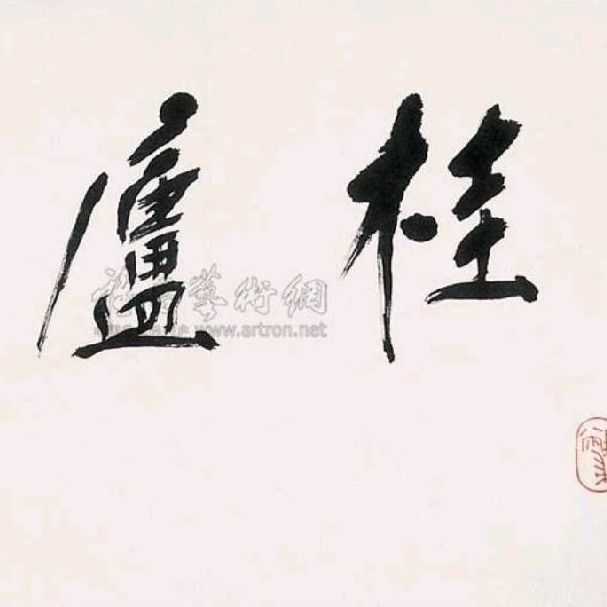 桂廬
藝術網
www.artron.net